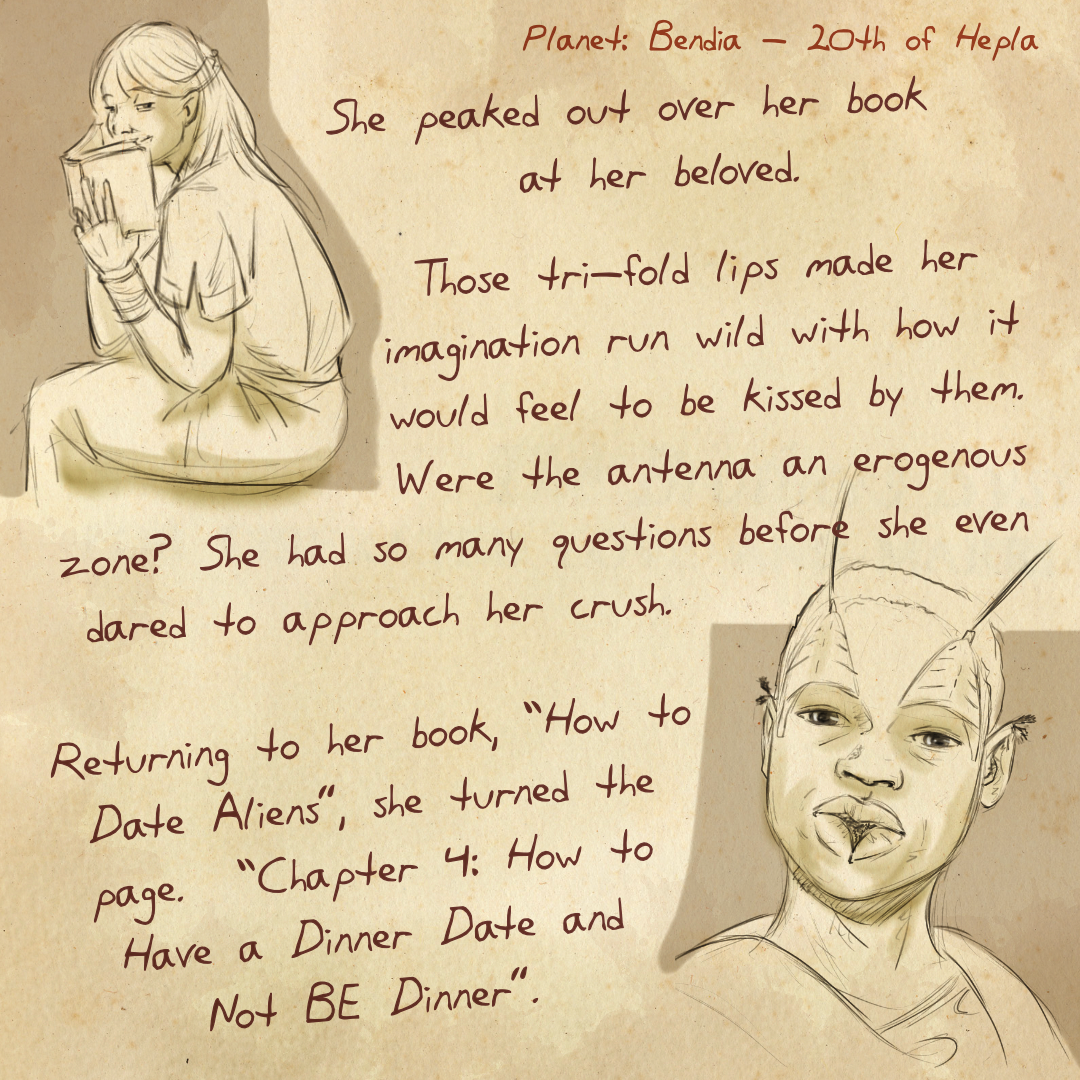 Planet: Bendia – 20th of Hepla
She peaked out over her book
at her beloved.
Those tri-fold lips made her
imagination run wild with how it
would feel to be kissed by them.
Were the antenna an erogenous
zone? She had so many questions before she even
dared to approach her crush.
Returning to her book, "How to
Date Aliens", she turned the
page. "Chapter 4: How to
Have a Dinner Date and
Not BE Dinner".